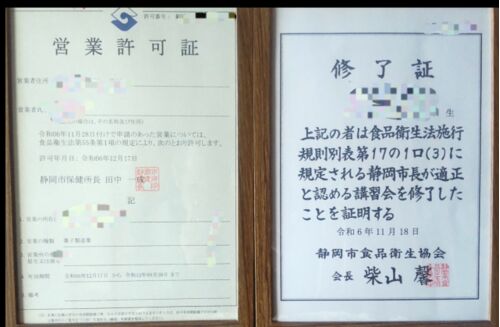 許可番号:
営業許可証
営業者住所
営業者氏
の場合は、その名称及び住所)
令和06年11月28日付けで申請のあった営業については、
食品衛生法第55条第1項の規定により、次のとおり許可します。
許可年月日、令和06年12月17日
静岡市保健所長 田中 一成
記
1 営業の所在
2 営業の種類 菓子製造業
4 有効期間
5 備考
修了証
生
上記の者は食品衛生法施行
規則別表第17の1ロ(3)に
規定される静岡市長が適正
と認める講習会を修了した
ことを証明する
令和6年11月18日
静岡市食品衛生協会
会長 柴山 馨